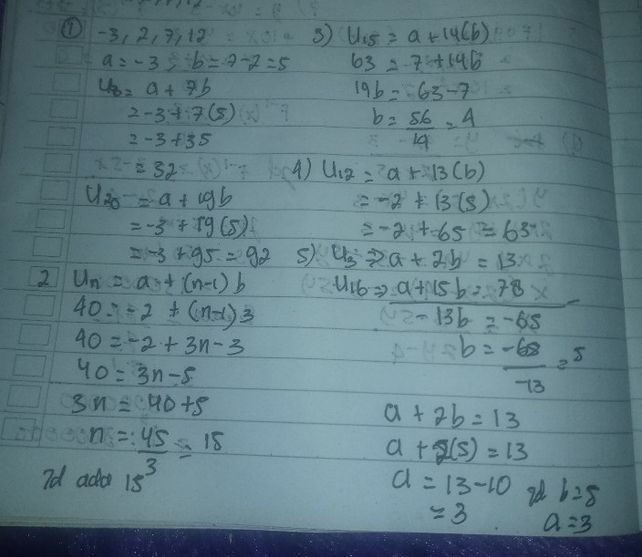 ① -3, 2, 7, 12
a = -3, b = 7-2 = 5
U8 = a + 7b
= -3 + 7(5)
= -3 + 35
= 32
U20 = a + 19b
= -3 + 19(5)
= -3 + 95 = 92
2 Un = a + (n-1) b
40 = -2 + (n-1) 3
40 = -2 + 3n - 3
40 = 3n - 5
3n = 40 + 5
n = 45/3 = 15
Jd ada 15
3) U15 = a + 14(b)
63 = 7 + 14b
14b = 63 - 7
b = 56/14 = 4
4) U12 = a + 13(b)
= -2 + 13(5)
= -2 + 65 = 63
5) U3 => a + 2b = 13
U16 => a + 15b = 78 -
- 13b = -65
b = -65/-13 = 5
a + 2b = 13
a + 2(5) = 13
a = 13 - 10
= 3
Jd b = 5
a = 3